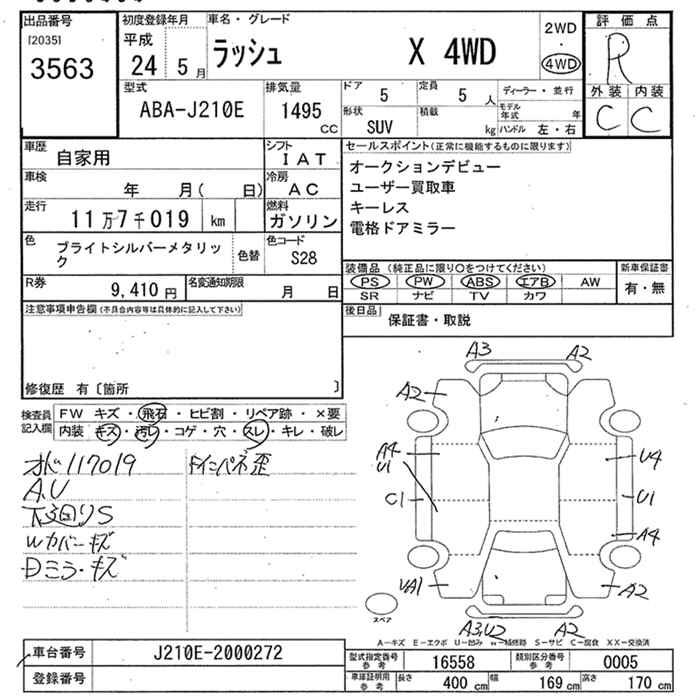 出品番号
[2035]
3563
初度登録年月
平成
24 5 月
車名・グレード
ラッシュ X 4WD
2WD
・
4WD
評価点
R
外装 内装
C C
型式
ABA-J210E
排気量
1495
CC
ドア
5
定員
5 人
形状
SUV
積載
kg
ディーラー・並行
モデル年式 年
ハンドル 左・右
車歴
自家用
シフト
IAT
車検
年 月( 日)
冷房
AC
走行
11万7千019 km
燃料
ガソリン
色
ブライトシルバーメタリック
色替
色コード
S28
R券
9,410 円
名変通知期限
月 日
セールスポイント(正常に機能するものに限ります)
オークションデビュー
ユーザー買取車
キーレス
電格ドアミラー
装備品(純正品に限り○をつけてください)
PS PW ABS エアB AW
SR ナビ TV カワ
新車保証書
有・無
後日品
保証書・取説
注意事項申告欄(不具合内容等は具体的に記入して下さい)
修復歴 有〔箇所 〕
検査員記入欄
FW キズ・飛石・ヒビ割・リペア跡・×要
内装 キズ・汚レ・コゲ・穴・スレ・キレ・破レ
オド117019
A.U
下廻りS
Wカバーキズ
Dミラーキズ
A3 A2
A2
A4
U1
U4
C1 U1
A4
UA1 A2
A3,U2 A2
スペア
A-キズ E-エクボ U-凹み W-補修跡 S-サビ C-腐食 XX-交換済
車台番号
J210E-2000272
登録番号
型式指定番号
参考
16558
類別区分番号
参考
0005
車庫証明用
参考
長さ 400 cm 幅 169 cm 高さ 170 cm